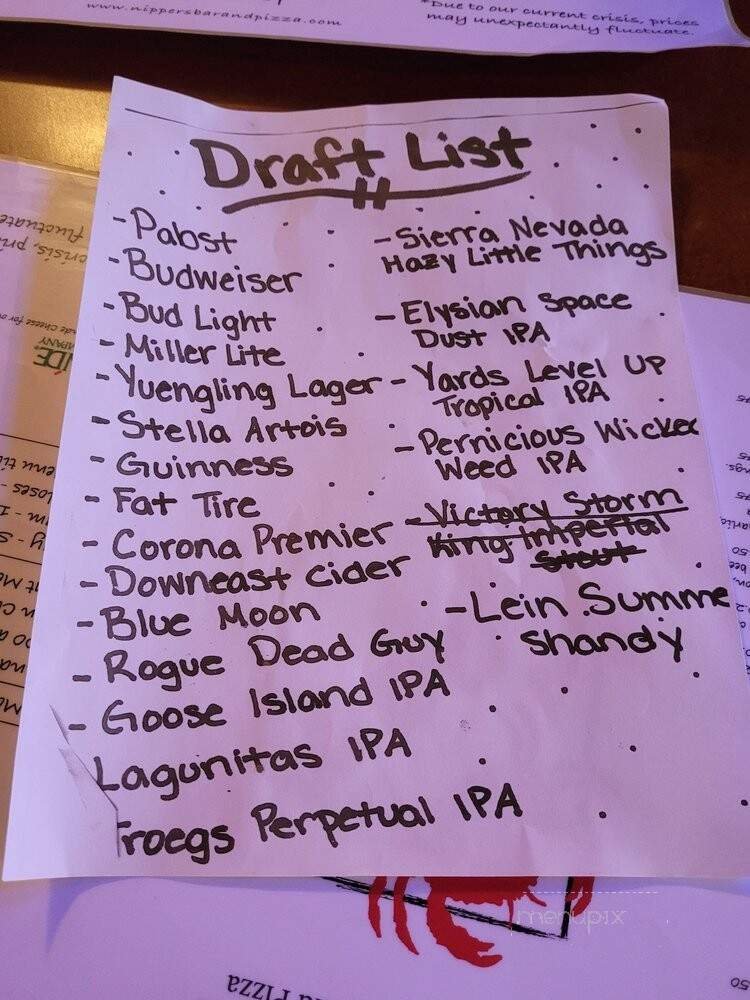 www.nippersbarandpizza.com
*Due to our current crisis, prices
may unexpectantly fluctuate.
Draft List
-Pabst
-Budweiser
-Bud Light
-Miller Lite
-Yuengling Lager
-Stella Artois
-Guinness
-Fat Tire
-Corona Premier
-Downeast Cider
-Blue Moon
-Rogue Dead Guy
-Goose Island IPA
Lagunitas IPA
Troegs Perpetual IPA
-Sierra Nevada
Hazy Little Things
-Elysian Space
Dust IPA
-Yards Level UP
Tropical IPA
-Pernicious Wicked
Weed IPA
-Victory Storm
King Imperial
Stout
-Lein Summe
Shandy
menupix
Pizza